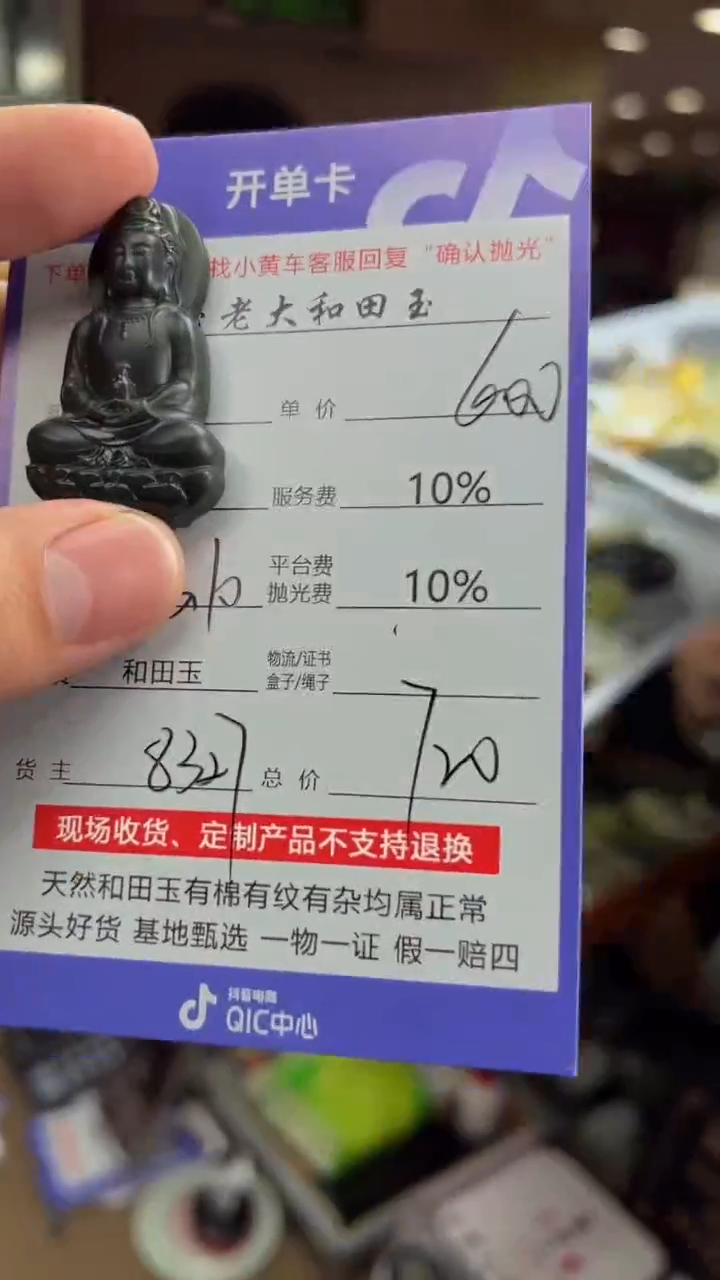 开单卡
下单 找小黄车客服回复“确认抛光”
老大和田玉
单价 600
服务费 10%
平台费
抛光费 10%
和田玉 物流/证书
盒子/绳子
货主 8327 总价 720
现场收货、定制产品不支持退换
天然和田玉有棉有纹有杂均属正常
源头好货 基地甄选 一物一证 假一赔四
抖音电商
QIC中心